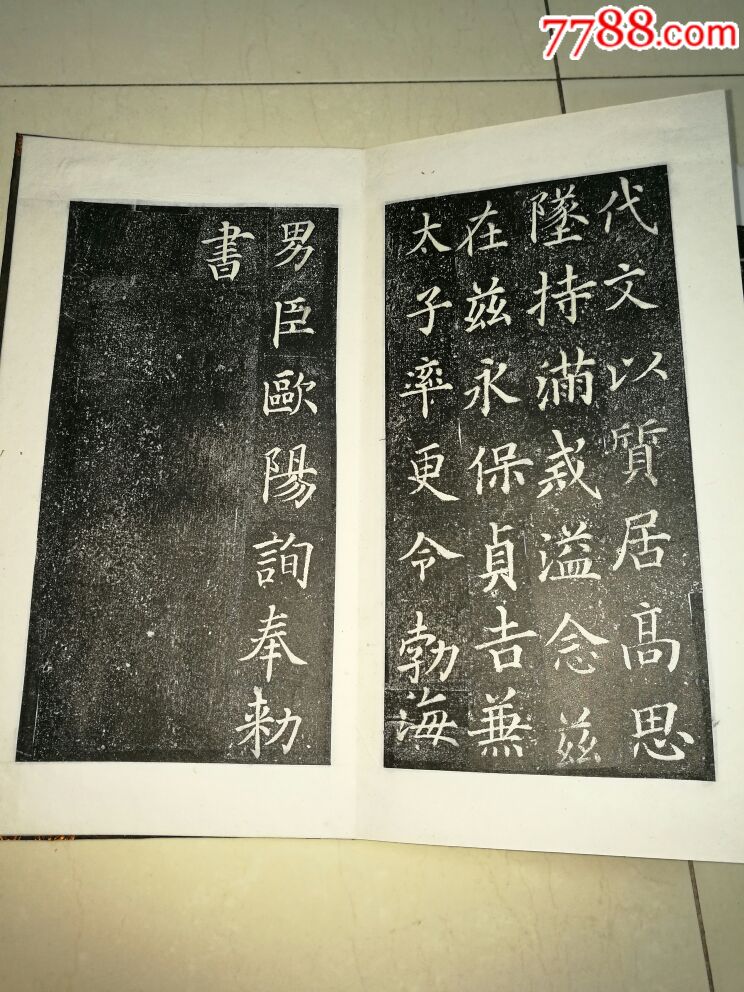 7788.com
代文以質居高思
墜持滿戒溢念茲
在茲永保貞吉兼
太子率更令勃海
男臣歐陽詢奉勅
書